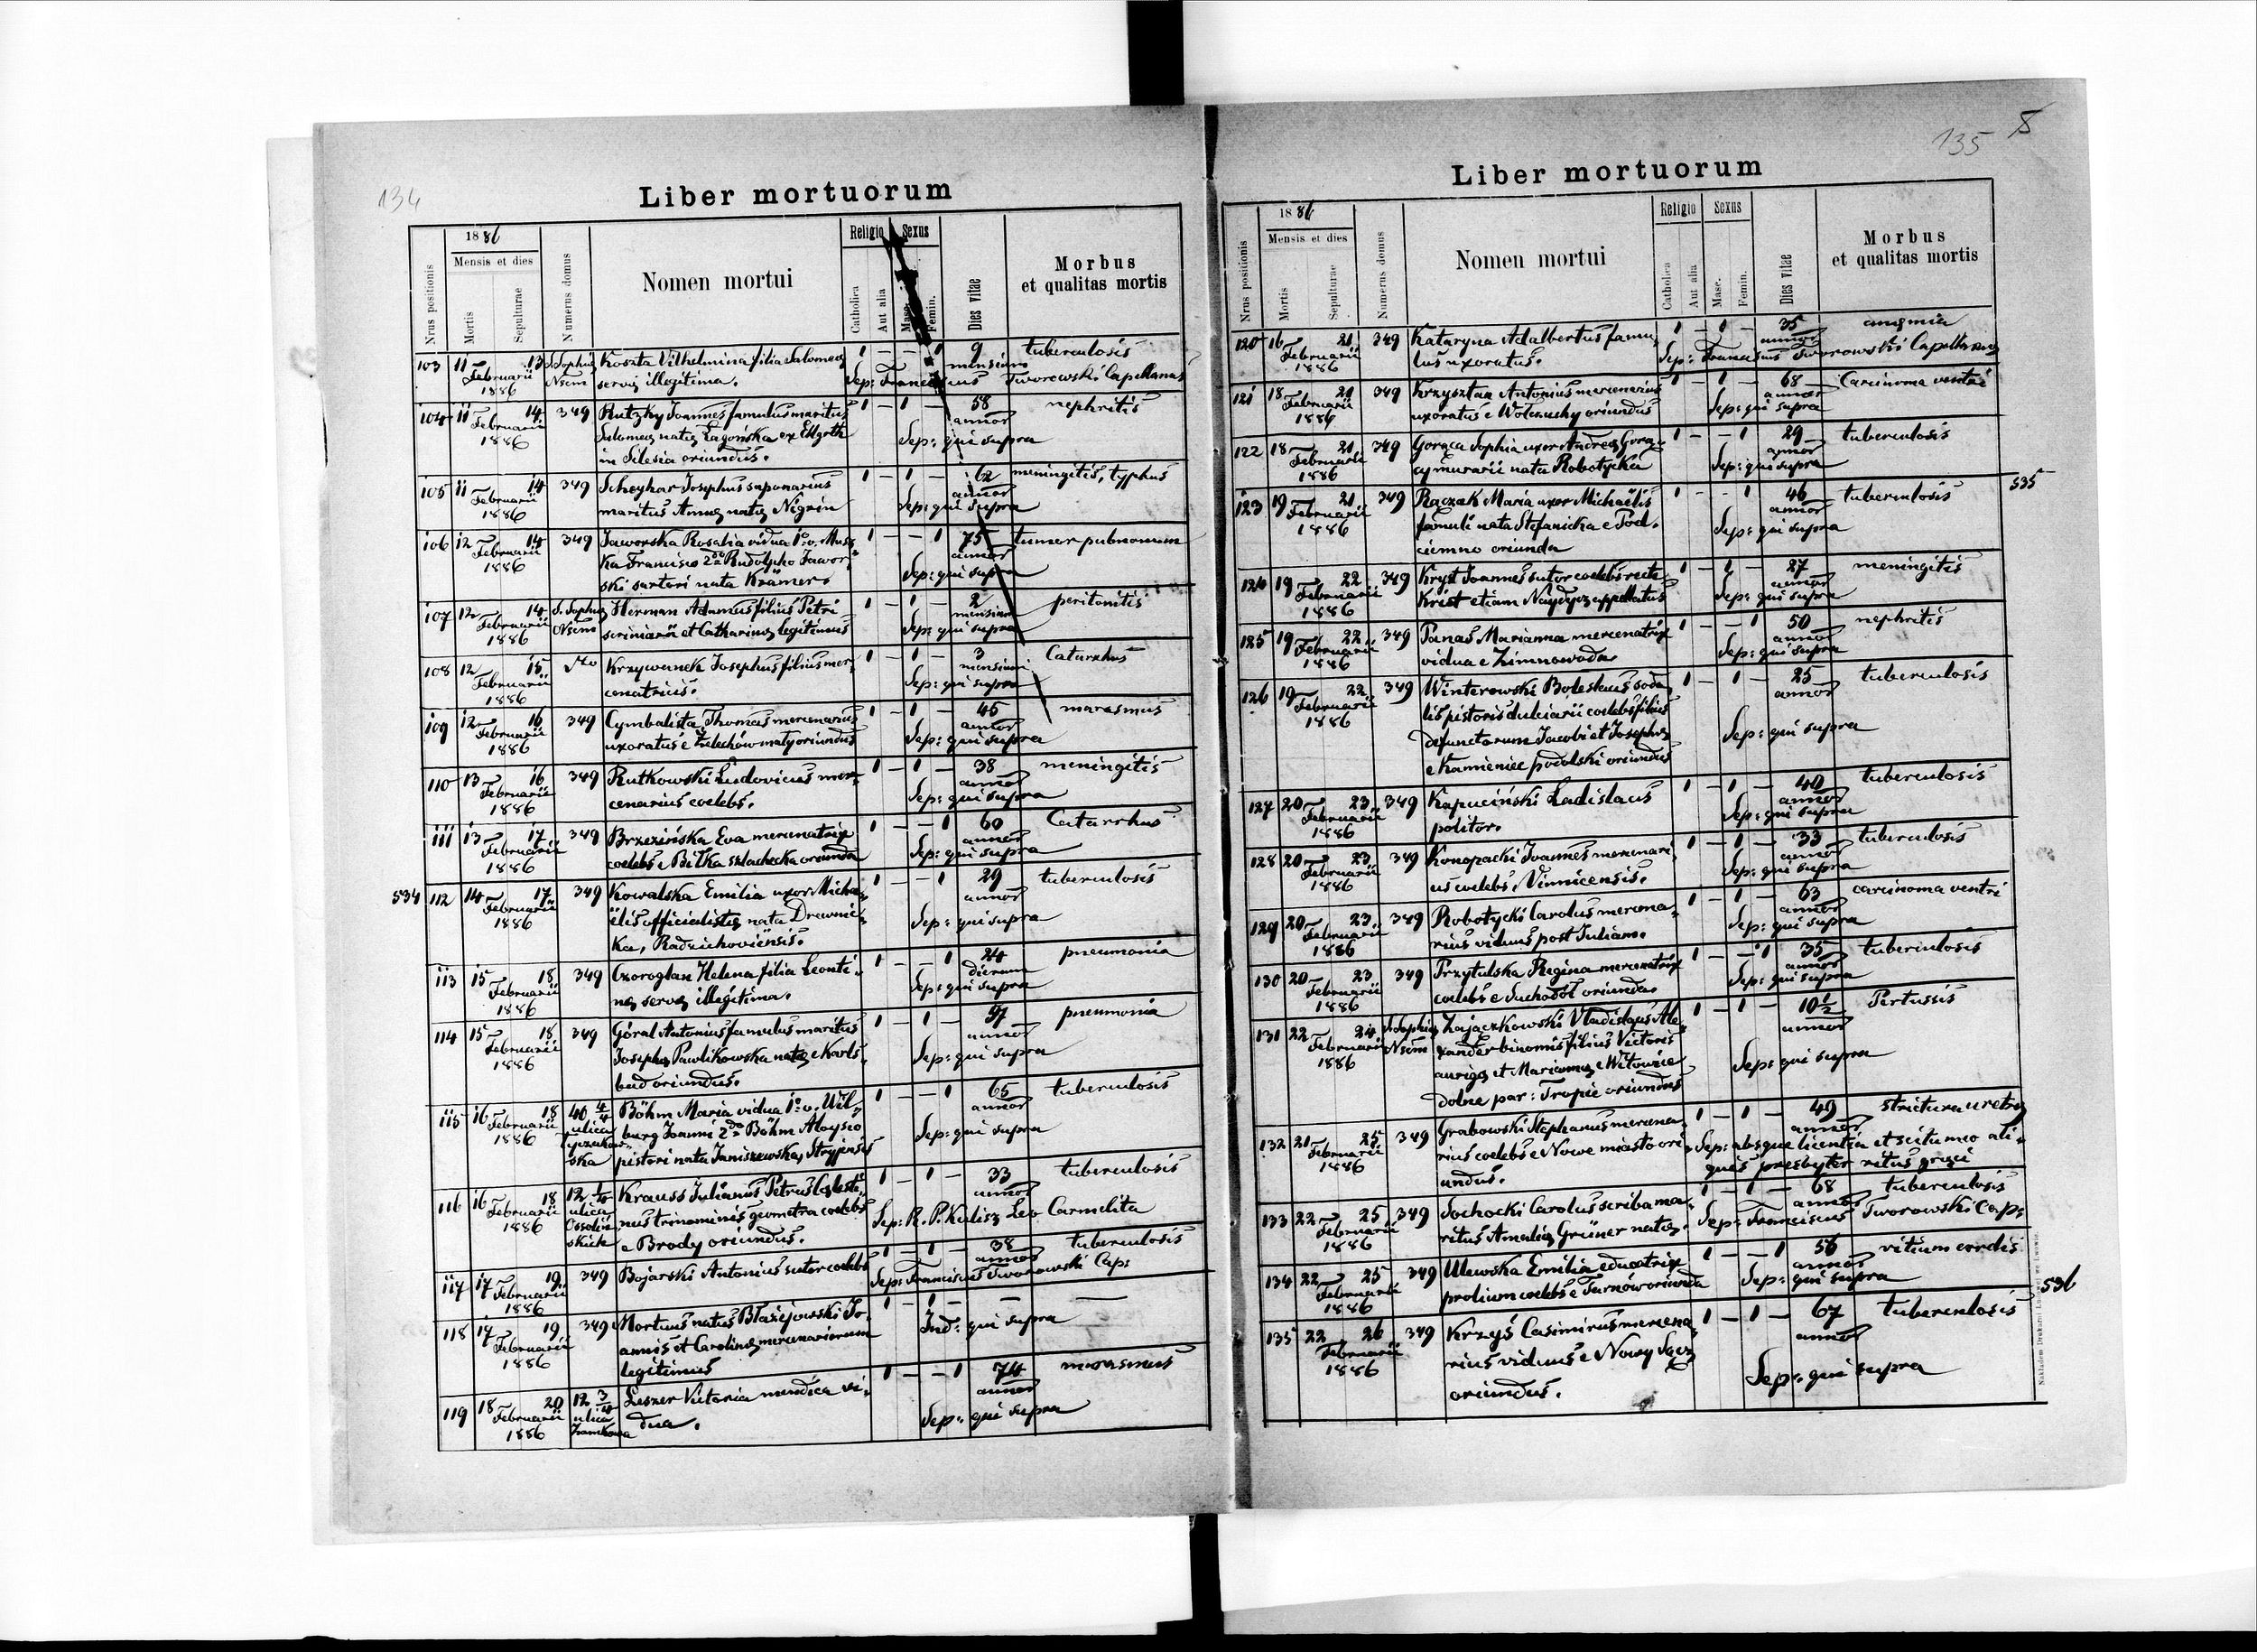 134
Liber mortuorum
1886
Mensis et dies
Nrus positionis
Mortis
Sepulturae
Numerus domus
Nomen mortui
Religio
Sexus
Catholica
Aut alia
Masc.
Femin.
Dies vitae
Morbus
et qualitas mortis
103 11 13 S. Sophiae Koszta Vilhelmina filia Salomeae 1 – – 1 9 tuberculosis
Februarii Nsem servae illegitima. mensium
1886 Sep: Franciscus Tworowski Capellanus
104 11 14 349 Rutzky Joannes famulus maritus 1 – 1 – 58 nephritis
Februarii Salomeae natae Łagońska ex Ellgoth annor
1886 in Silesia oriundus. Sep: qui supra
105 11 14 349 Scheyhar Josephus saponarius 1 – 1 – 62 meningitis, typhus
Februarii maritus Annae natae Nigrin annor
1886 Sep: qui supra
106 12 14 349 Jaworska Rosalia vidua 1o v. Muss 1 – – 1 75 tumor pulmonum
Februarii ka Francisco 2do Rudolpho Jawor annor
1886 ski sartori nata Krämer. Sep: qui supra
107 12 14 S. Sophiae Herman Adamus filius Petri 1 – 1 – 2 peritonitis
Februarii Nsem scriniarii et Catharinae legitimus mensium
1886 Sep: qui supra
108 12 15 Krzywanek Josephus filius mer 1 – 1 – 3 Catarrhus
Februarii cenatricis. mensium
1886 Sep: qui supra
109 12 16 349 Cymbalista Thomas mercenarius 1 – 1 – 45 marasmus
Februarii uxoratus e Żelechów maty oriundus annor
1886 Sep: qui supra
110 13 16 349 Rutkowski Ludovicus mer 1 – 1 – 38 meningitis
Februarii cenarius coelebs. annor
1886 Sep: qui supra
111 13 17 349 Brzezińska Eva mercenatrix 1 – – 1 60 Catarrhus
Februarii coelebs e Biłka szlachecka oriunda annor
1886 Sep: qui supra
534 112 14 17 349 Kowalska Emilia uxor Micha 1 – – 1 29 tuberculosis
Februarii ëlis officialistae nata Drewnic annor
1886 ka, Radziechoviensis. Sep: qui supra
113 15 18 349 Czoroglan Helena filia Leonti 1 – – 1 24 pneumonia
Februarii nae servae illegitima. dierum
1886 Sep: qui supra
114 15 18 349 Góral Antonius famulus maritus 1 – 1 – 57 pneumonia
Februarii Josephae Pawlikowska natae e Karls annor
1886 bad oriundus. Sep: qui supra
115 16 18 40 4/4 Böhm Maria vidua 1o v. Wil 1 – – 1 65 tuberculosis
Februarii ulica burg Joanni 2do Böhm Aloysio annor
1886 Łyczakow ska pistori nata Janiszewska, Stryjensis Sep: qui supra
116 16 18 12 1/10 Krauss Julianus Petrus Caelesti 1 – 1 – 33 tuberculosis
Februarii ulica nus trinominis geometra coelebs annor
1886 Ossoliń skich e Brody oriundus. Sep: R. P. Kulisz Leo Carmelita
117 17 19 349 Bojarski Antonius sutor coelebs 1 – 1 – 38 tuberculosis
Februarii annor
1886 Sep: Franciscus Tworowski Cap:
118 17 19 349 Mortuus natus Błażejowski Jo 1 – 1 – – –
Februarii annis et Carolinae mercenariorum Ind: qui supra
1886 legitimus
119 18 20 12 3/4 Leszer Victoria mendica vi 1 – – 1 74 marasmus
Februarii ulica dua. annor
1886 Zamkowa Sep: qui supra
135 8
Liber mortuorum
1886
Mensis et dies
Nrus positionis
Mortis
Sepulturae
Numerus domus
Nomen mortui
Religio
Sexus
Catholica
Aut alia
Masc.
Femin.
Dies vitae
Morbus
et qualitas mortis
120 16 21 349 Kataryna Adalbertus famu 1 – 1 – 35 anaemia
Februarii lus uxoratus. annor
1886 Sep: Franciscus Tworowski Capellanus
121 18 21 349 Krzysztan Antonius mercenarius 1 – 1 – 68 Carcinoma ventri
Februarii uxoratus e Wołczuchy oriundus annor
1886 Sep: qui supra
122 18 21 349 Goraca Sophia uxor Andreae Gora 1 – – 1 29 tuberculosis
Februarii cy murarii nata Robotycka annor
1886 Sep: qui supra
123 19 21 349 Raczak Maria uxor Michaëlis 1 – – 1 46 tuberculosis 535
Februarii famuli nata Stefanicka e Pod annor
1886 ciemno oriunda Sep: qui supra
124 19 22 349 Kryst Joannes sutor coelebs recte 1 – 1 – 27 meningitis
Februarii Krist etiam Naydycz appellatus annor
1886 Sep: qui supra
125 19 22 349 Panas Marianna mercenatrix 1 – – 1 50 nephritis
Februarii vidua e Zimnowoda annor
1886 Sep: qui supra
126 19 22 349 Winterowski Boleslaus soda 1 – 1 – 25 tuberculosis
Februarii lis pistoris dulciarii coelebs filius annor
1886 defunctorum Jacobi et Josephae Sep: qui supra
e Kamieniec podolski oriundus
127 20 23 349 Kapuciński Ladislaus 1 – 1 – 40 tuberculosis
Februarii politor. annor
1886 Sep: qui supra
128 20 23 349 Konopacki Joannes mercenari 1 – 1 – 33 tuberculosis
Februarii us coelebs, Vinnicensis. annor
1886 Sep: qui supra
129 20 23 349 Robotycki Carolus mercena 1 – 1 – 63 carcinoma ventri
Februarii rius viduus post Juliam. annor
1886 Sep: qui supra
130 20 23 349 Przytulska Regina mercenatrix 1 – – 1 35 tuberculosis
Februarii coelebs e Suchodół oriunda. annor
1886 Sep: qui supra
131 22 24 S. Sophiae Zajączkowski Vladislaus Ale 1 – 1 – 10 1/2 Pertussis
Februarii Nsem xander binomis filius Victoris annor
1886 aurigae et Mariannae e Witowice Sep: qui supra
dolne par: Tropie oriundus
132 21 25 349 Grabowski Stephanus mercena 1 – 1 – 49 strictura uretrae
Februarii rius coelebs e Nowe miasto ori annor
1886 undus. Sep: absque licentia et scitu meo ali
quis presbyter ritus graeci
133 22 25 349 Sochocki Carolus scriba ma 1 – 1 – 68 tuberculosis
Februarii ritus Amaliae Grüner natae. annor
1886 Sep: Franciscus Tworowski Cap:
134 22 25 349 Ulewska Emilia educatrix 1 – – 1 56 vitium cordis
Februarii prolium coelebs e Tarnów oriunda annor
1886 Sep: qui supra
536
135 22 26 349 Krzyś Casimirus mercena 1 – 1 – 67 tuberculosis
Februarii rius viduus e Nowy Sącz annor
1886 oriundus. Sep: qui supra